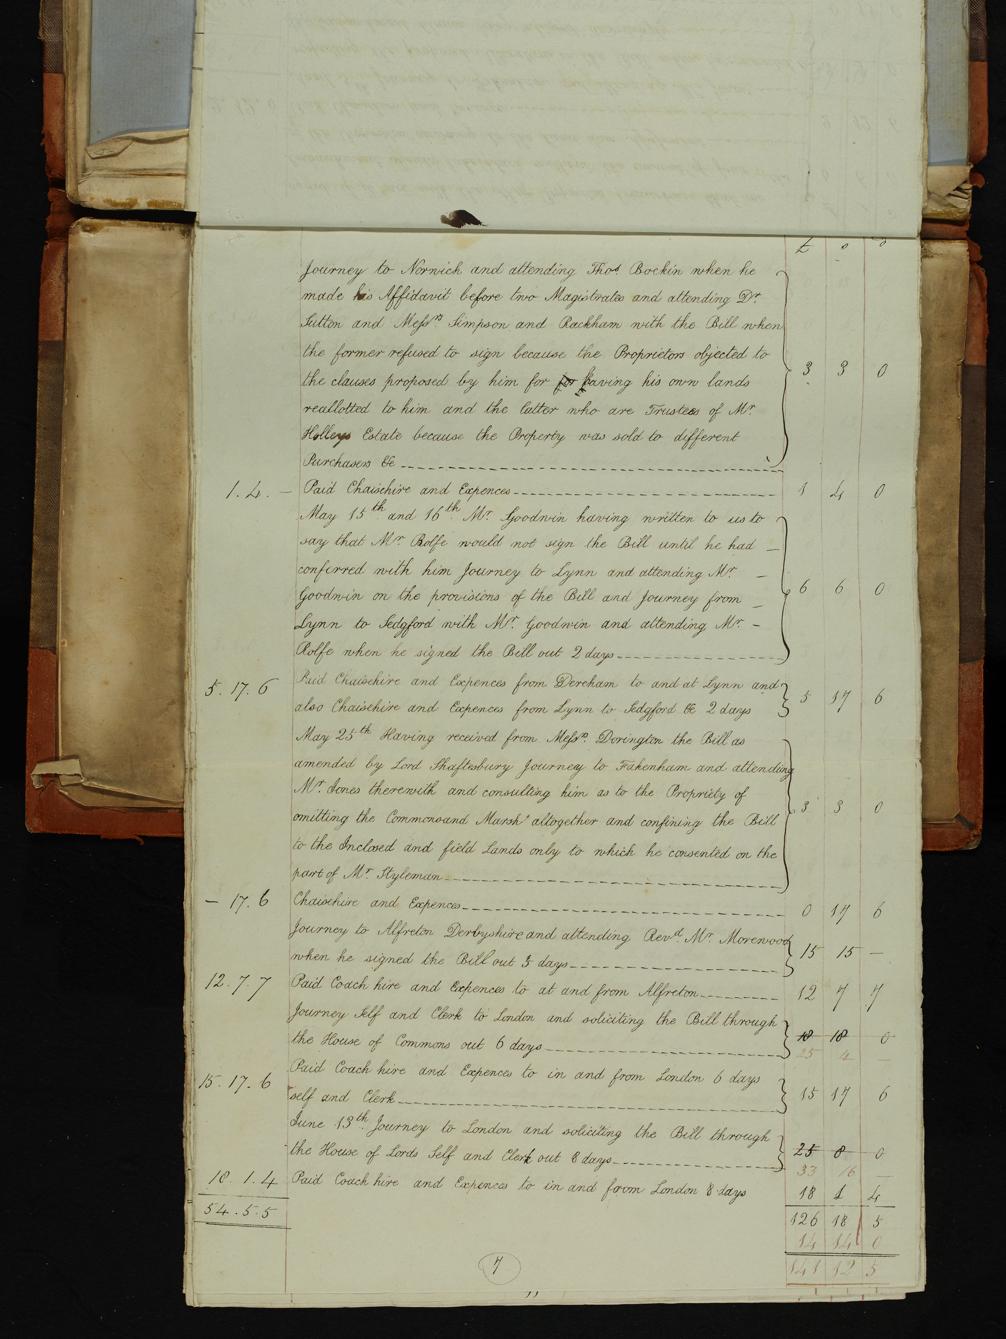 £ s d
Journey to Norwich and attending Thos Bockin when he
made his Affidavit before two Magistrates and attending Dr.
Sutton and Messrs Simpson and Rackham with the Bill when
the former refused to sign because the Proprietors objected to
the clauses proposed by him for for having his own lands 3 3 0
reallotted to him and the latter who are Trustees of Mr
Holleys Estate because the Property was sold to different
Purchasers &c
1.4.— Paid Chaisehire and Expences 1 4 0
May 15th and 16th Mr Goodwin having written to us to
say that Mr Rolfe would not sign the Bill until he had
conferred with him Journey to Lynn and attending Mr
Goodwin on the provisions of the Bill and Journey from 6 6 0
Lynn to Sedgford with Mr Goodwin and attending Mr
Rolfe when he signed the Bill out 2 days
5.17.6 Paid Chaisehire and Expences from Dereham to and at Lynn and 5 17 6
also Chaisehire and Expences from Lynn to Sedgford &c 2 days
May 25th Having received from Messrs Dorington the Bill as
amended by Lord Shaftesbury Journey to Fakenham and attending
Mr Jones therewith and consulting him as to the Propriety of
omitting the Commons and Marshs altogether and confining the Bill 3 3 0
to the Inclosed and field Lands only to which he consented on the
part of Mr Styleman
— 17.6 Chaisehire and Expences 0 17 6
Journey to Alfreton Derbyshire and attending Revd. Mr. Morewood
when he signed the Bill out 3 days 15 15 —
12.7.7 Paid Coach hire and Expences to at and from Alfreton 12 7 7
Journey Self and Clerk to London and soliciting the Bill through
the House of Commons out 6 days 18 18 0
25 4 —
15.17.6 Paid Coach hire and Expences to in and from London 6 days
self and Clerk 15 17 6
June 13th Journey to London and soliciting the Bill through
the House of Lords Self and Clerk out 8 days 25 8 0
33 16 —
18.1.4 Paid Coach hire and Expences to in and from London 8 days 18 1 4
54.5.5 126 18 5
14 14 0
141 12 5
7